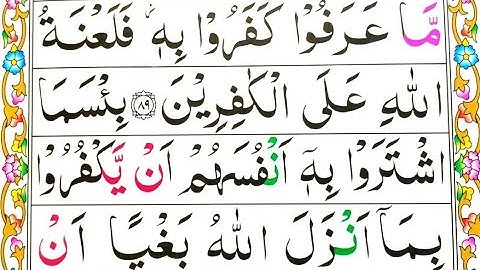 مَّا عَرَفُوْا كَفَرُوْا بِهٖ ز فَلَعْنَةُ
اللّٰهِ عَلَى الْكٰفِرِيْنَ ﴿۸۹﴾ بِئْسَمَا
اشْتَرَوْا بِهٖۤ اَنْفُسَهُمْ اَنْ يَّكْفُرُوْا
بِمَاۤ اَنْزَلَ اللّٰهُ بَغْيًا اَنْ